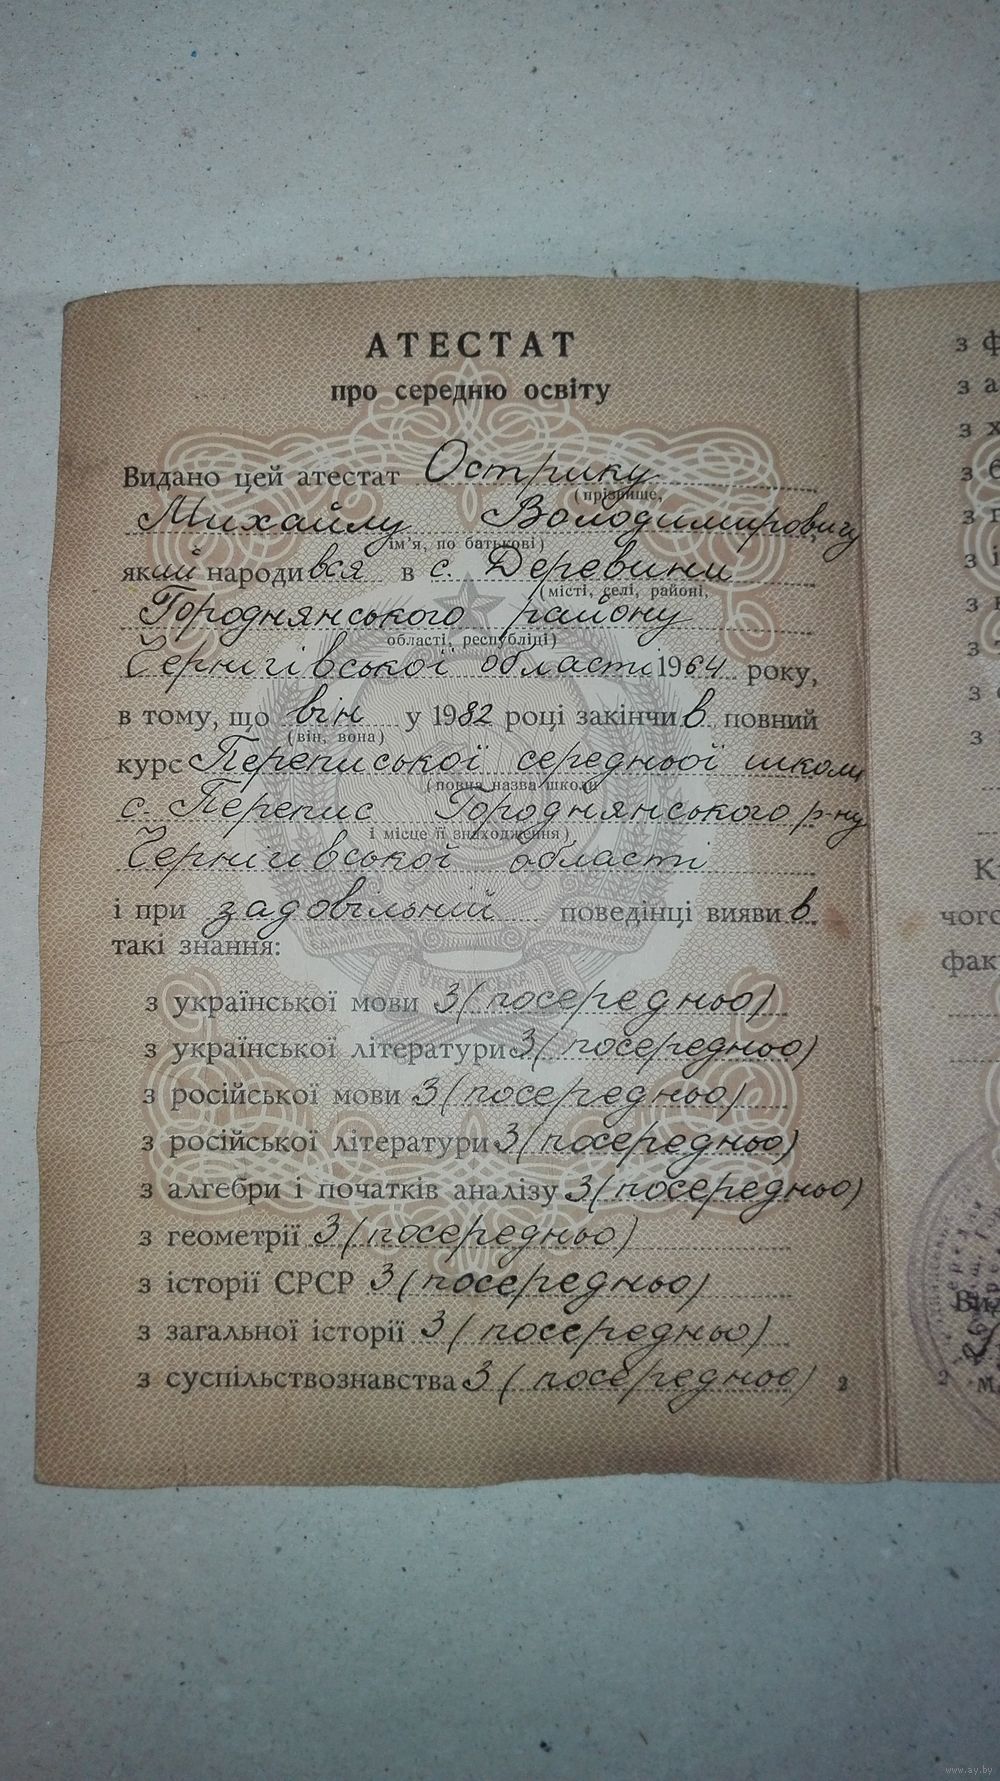 АТЕСТАТ
про середню освіту
Видано цей атестат Острику
(прізвище,
Михайлу Володимировичу
ім'я, по батькові)
який народився в с. Деревини
(місті, селі, районі,
Городнянського району
області, республіці)
Чернігівської області 1964 року,
в тому, що він у 1982 році закінчив повний
(він, вона)
курс Переписької середньої школи
(повна назва школи
с. Перепис Городнянського р-ну
і місце її знаходження)
Чернігівської області
і при задовільній поведінці виявив
такі знання:
УКРАЇНСЬКА
з української мови 3 (посередньо)
з української літератури 3 (посередньо)
з російської мови 3 (посередньо)
з російської літератури 3 (посередньо)
з алгебри і початків аналізу 3 (посередньо)
з геометрії 3 (посередньо)
з історії СРСР 3 (посередньо)
з загальної історії 3 (посередньо)
з суспільствознавства 3 (посередньо)
2
з ф
з а
з х
з б
з г
з і
з
з
з
з
К
чого
фак
Вид
2
м.
www.ay.by